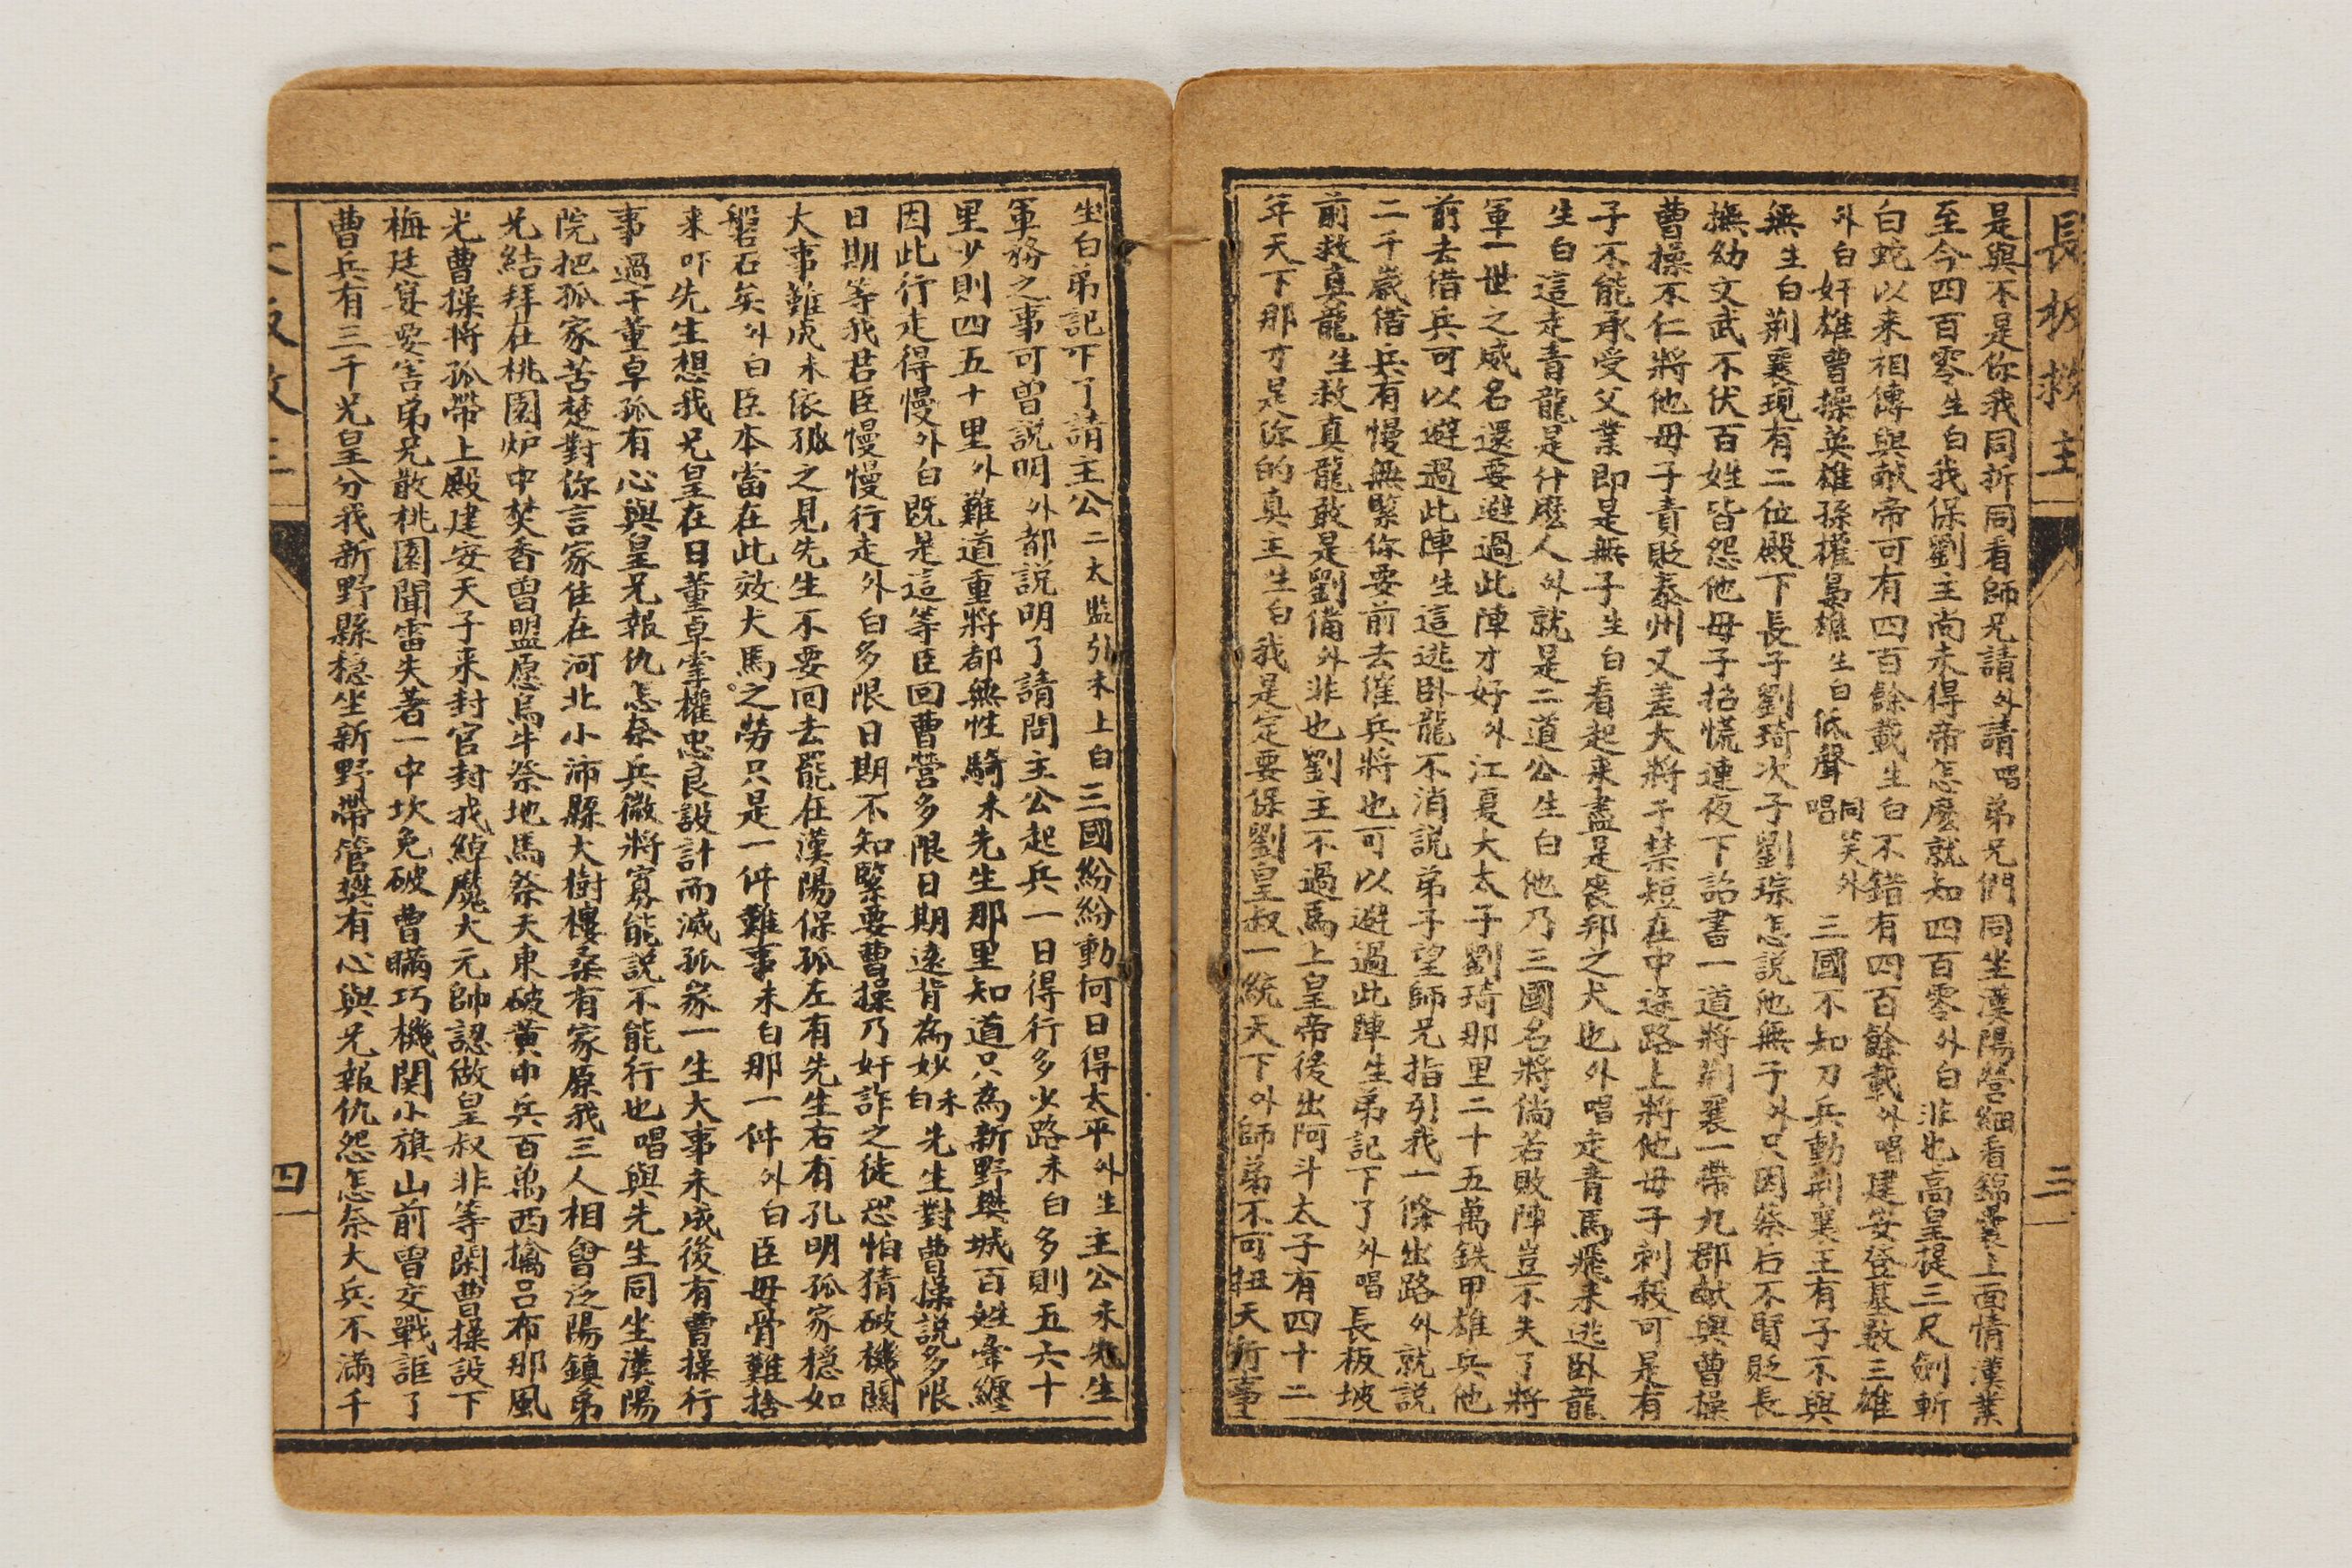 長板救主
三
是與不是你我同折同看師兄請外請唱弟兄們同坐漢陽營細看錦囊上面情漢業
至今四百零生白我保劉主尚未得帝怎麽就知四百零外白非也高皇提三尺劍斬
白蛇以来相傳與献帝可有四百餘載生白不錯有四百餘載外唱建安登基数三雄
外白奸雄曹操英雄孫權梟雄生白低聲同笑外唱三國不知刀兵動荆襄王有子不與
無生白荆襄現有二位殿下長子劉琦次子劉琮怎説他無子外只因蔡后不賢貶長
撫幼文武不伏百姓皆怨他毋子招慌連夜下詔書一道將荆襄一帶九郡献與曹操
曹操不仁將他毋子責貶泰州又差大將于禁短在中途路上將他毋子刺殺可是有
子不能承受父業即是無子生白看起来盡是喪邦之犬也外唱走青馬飛来逃卧龍
生白這走青龍是什麽人外就是二道公生白他乃三國名將倘若敗陣豈不失了將
軍一世之威名還要避過此陣才好外江夏大太子劉琦那里二十五萬鉄甲雄兵他
前去借兵可以避過此陣生這逃卧龍不消説弟子望師兄指引我一條出路外就説
二千歲借兵有慢無緊你要前去催兵將也可以避過此陣生弟記下了外唱長板坡
前救真龍生救真龍敢是劉備外非也劉主不過馬上皇帝後出阿斗太子有四十二
年天下那才是你的真王生白我是定要保劉皇叔一統天下外師弟不可扭天行事
生白弟記下了請主公二太監引末上白三國紛紛動何日得太平外生主公末先生
軍務之事可曾説明外都説明了請問主公起兵一日得行多少路末白多則五六十
里少則四五十里外難道重將都無性騎末先生那里知道只為新野樊城百姓牽纏
因此行走得慢外白既是這等臣回曹營多限日期遠背為妙末白先生對曹操説多限
日期等我君臣慢慢行走外白多限日期不知緊要曹操乃奸詐之徒恐怕猜破機關
大事難成末依孤之見先生不要回去罷在漢陽保孤左有先生右有孔明孤家穏如
磐石矣外白臣本當在此效犬馬之勞只是一件難事末白那一件外白臣毋骨難捨
来吓先生想我兄皇在日董卓掌權忠良設計而滅孤家一生大事未成後有曹操行
事過于董卓孤有心與皇兄報仇怎奈兵微將寡能説不能行也唱與先生同坐漢陽
院把孤家苦楚對你言家住在河北小沛縣大樹樓桑有家原我三人相會泛陽鎮弟
兄結拜在桃園炉中焚香曾盟愿烏牛祭地馬祭天東破黄巾兵百萬西擒吕布那風
光曹操將孤帶上殿建安天子来封官封我綽魔大元帥認做皇叔非等閑曹操設下
梅廷宴要害弟兄散桃園聞雷失著一中坎免破曹瞞巧機関小旗山前曾交戰誆了
曹兵有三千兄皇分我新野縣穏坐新野帶管樊有心與兄報仇怨怎奈大兵不滿千
四